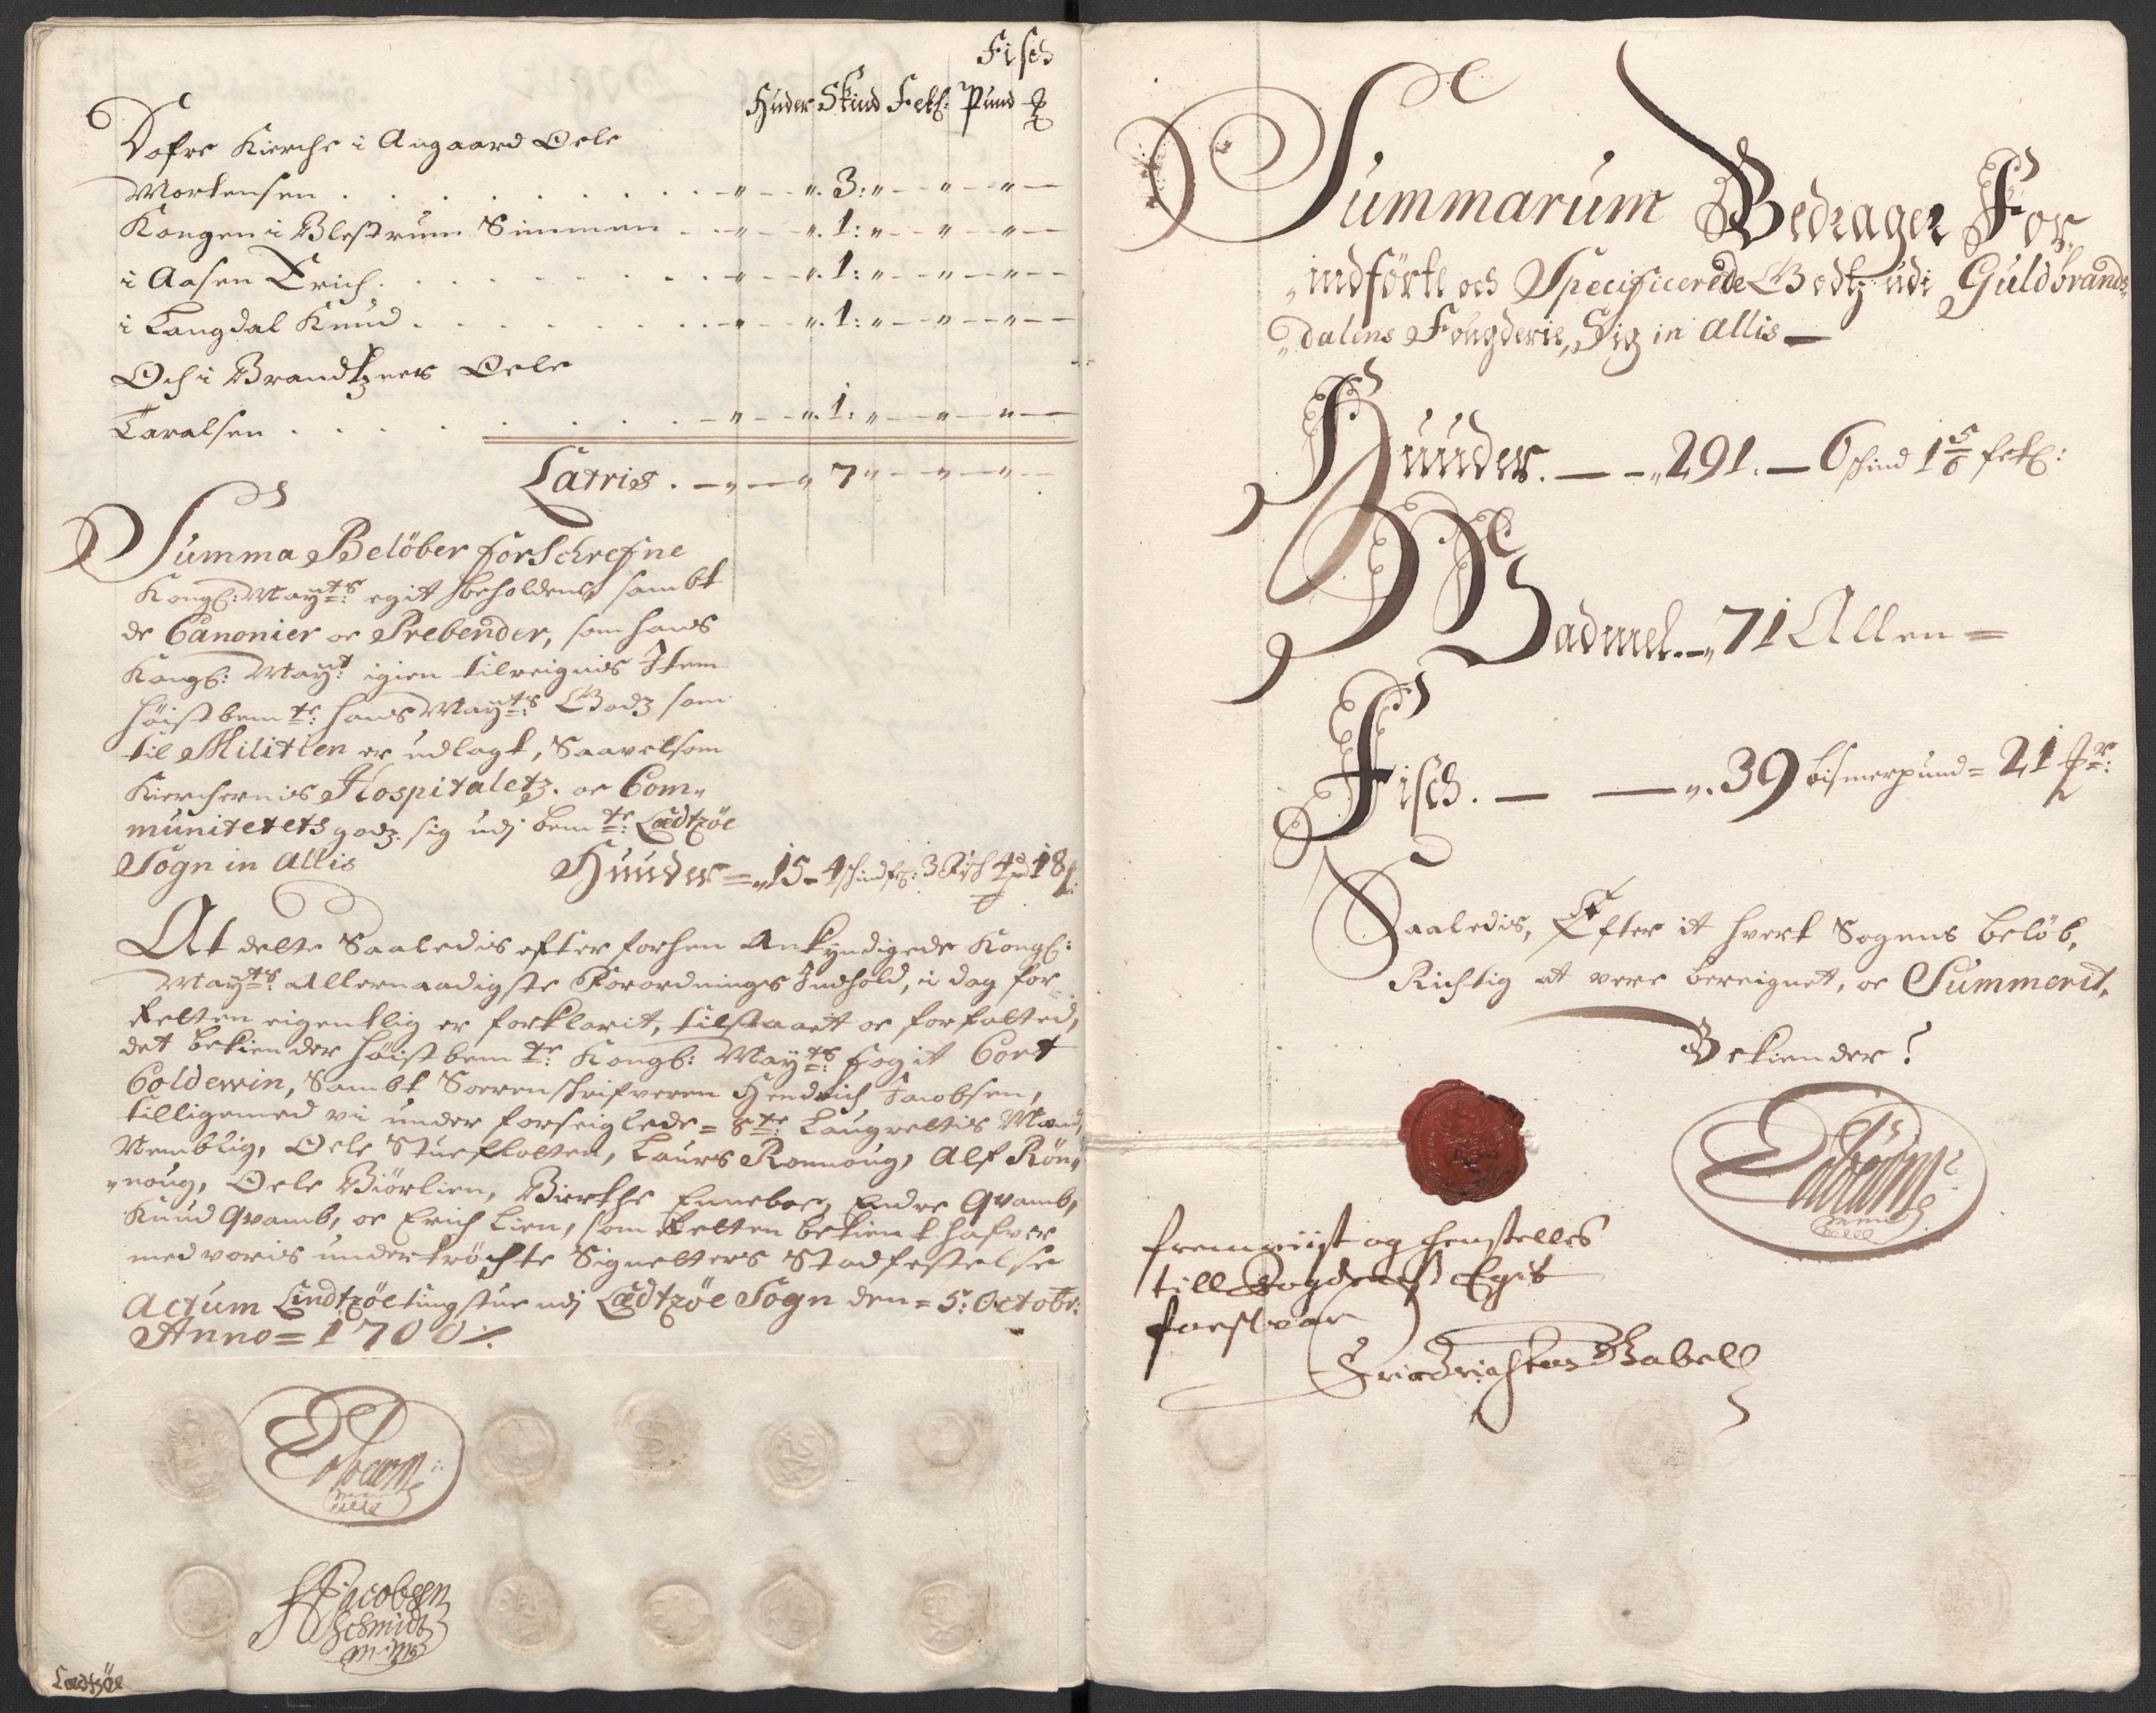 Fisch
Huder Skind Fetl: Pund
Dofre Kierche i Angaard Oele
Mortensen . . . . . . . . . . „ — „. 3: „ — „ — „ —
Kongen i Blestrum Simmen . . — „ — „. 1: „ — „ — „ —
i Aasen Erich . . . . . . . — „ — „. 1: „ — „ — „ —
i Langdal Knud . . . . . . . — „ — „. 1: „ — „ — „ —
Och i Brandtznes Oele
Taralsen . . . . . . . . — „ — „. 1: „ — „ — „ —
Latris . — „ — „ 7 „ — „ — „ —
Summa Beløber forschrefne
Kongl: Mayts: egit beholdens sambt
de Canonier oc Prebender, som hans
Kongl: Mayt: igien tilreignis Item
höistbemte: hans Mayts: Godz som
til Militien er udlagt, Saavelsom
Kierchernis Hospitaletz. oc Com„
munitetets godz. sig udj bemte: Lædtzøe
Sogn in allis Huuder = „ 15 - 4 schind 3 Fisch 4 pd 18
At dette Saaledis efter forhen Ankyndigede Kongl:
Mayts: Allernaadigste Forordninges Indhold, i dag for
Retten eigentlig er forklarit, tilstaaet oc forfatted,
det bekiender höistbemte: Kongl: Mayts: fogit Cort
Coldewin, Sambt Sorenschrifveren Hendrich Jacobsen,
tilligemed vi under forseiglede = 8te: Laugrettis Mænd,
Nemblig, Oele Stuefloten, Laurs Rönnoug, Alf Rön„
„noug, Oele Biörlien, Bierthe Enneboe, Endre Qvamb,
Knud Qvamb, oc Erich Lien, som Retten bekient hafver
med voris undertröchte Signetters Stadfestelse
Actum Lindtzøe tingstue udj Lædtzøe Sogn den = 5: Octobr:
Anno = 1700 ./.
HJacobsen
Schmidt
mpp
Lædtzöe
Summarum Bedrager For„
„indførte och Specificerede Godtz udi Guldbrands„
„dalens Fougderie, Sig in allis —
Huuder. — — „291. — 6 schind 1 5/6 fetl:
Wadmel. — „ 71 Allen =
Fisch. — — „. 39 bismerpund = 21
Saaledis, Efter it hvert Sogens beløb,
Richtig at vere bereignet, oc Summerit,
Bekiender?
fremviist og henstelles
till Fogdens Egit
forsvar
Friedrich von Gabell